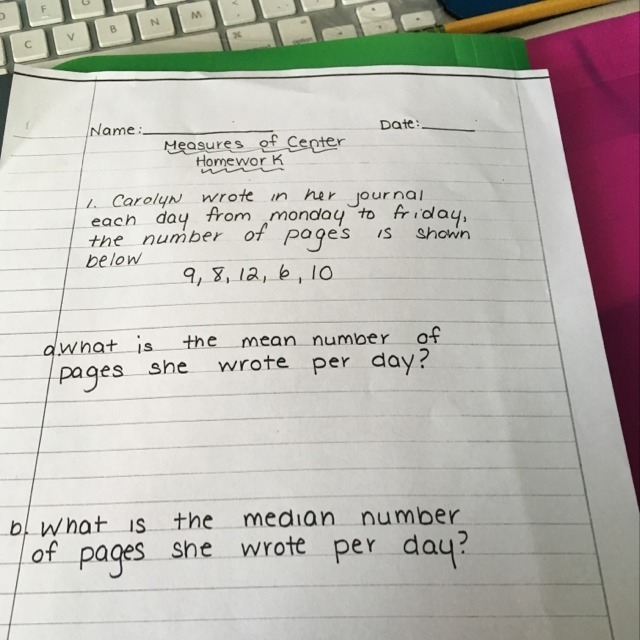 F
C V B N M
⌘
Name: Date:
Measures of Center
Homework
1. Carolyn wrote in her journal
each day from monday to friday,
the number of pages is shown
below
9, 8, 12, 6, 10
a. what is the mean number of
pages she wrote per day?
b. What is the median number
of pages she wrote per day?